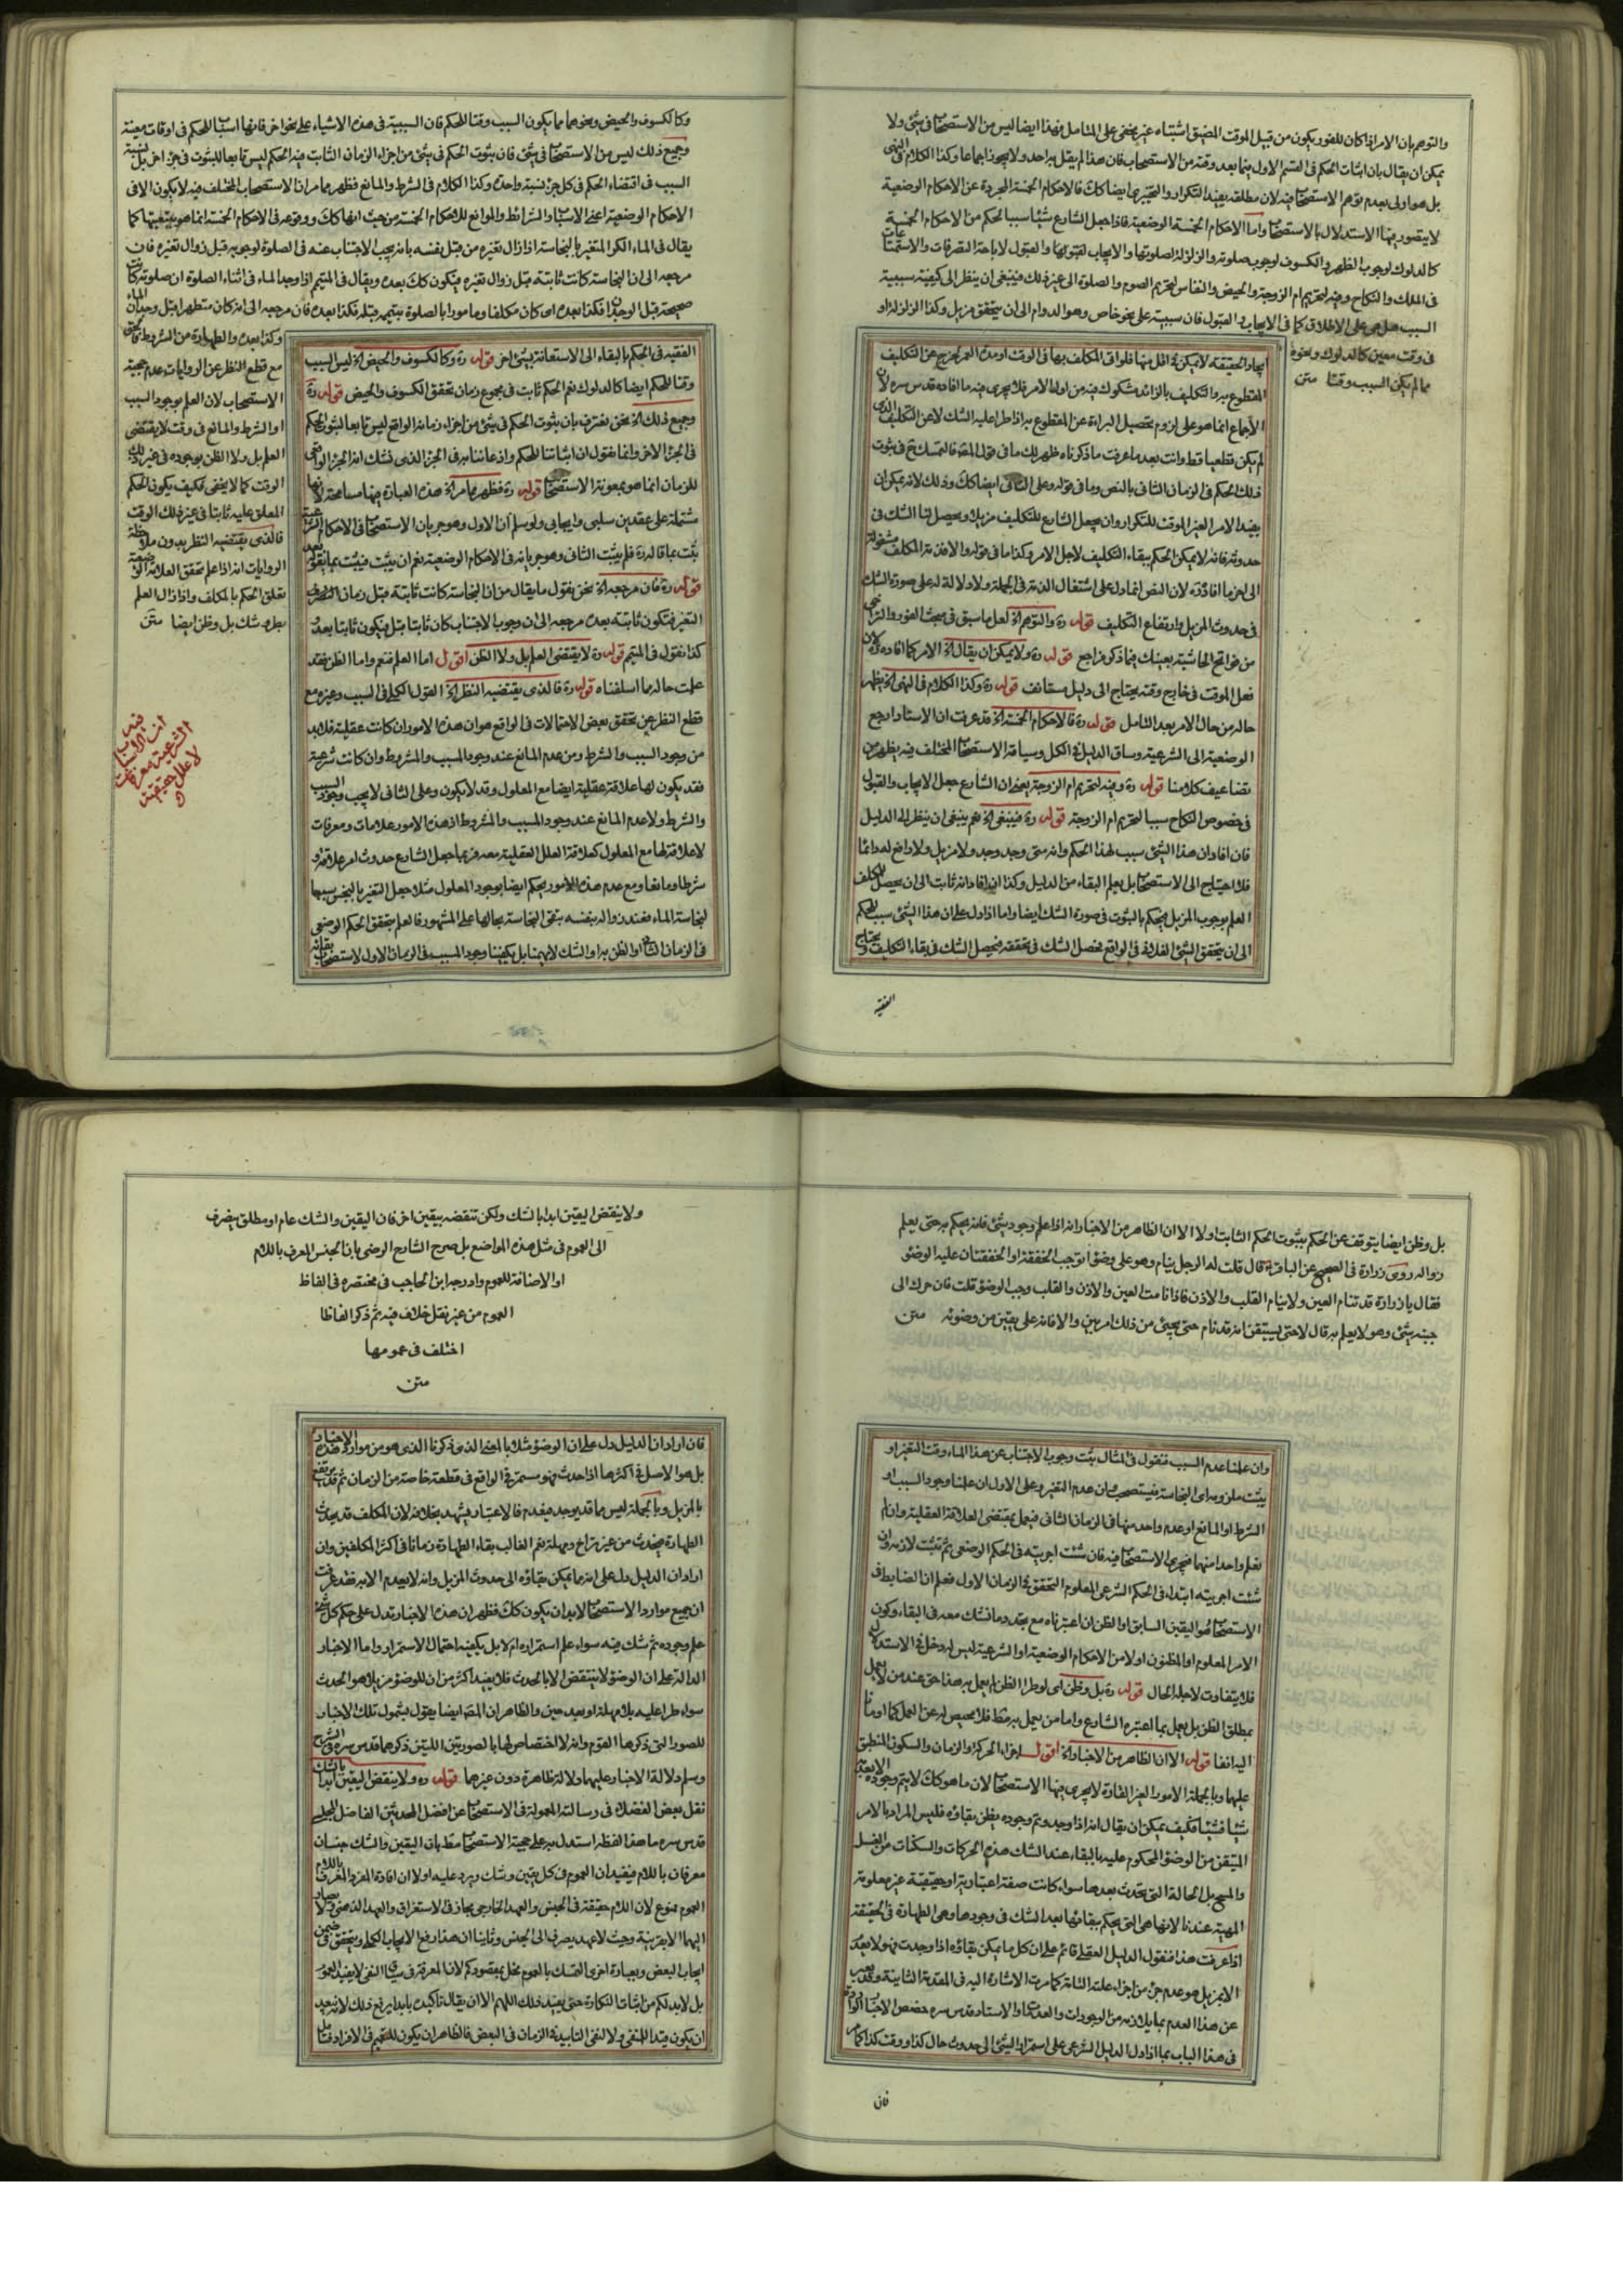 والتوهم بان الامر اذا كان للفور يكون من قبيل الموقت المضيق اشتباه غير خفي على المتامل فهذا ايضا ليس من الاستصحاب في شئ ولا
يمكن ان يقال بان اثبات الحكم في القسم الاول فيما بعد وقته من الاستصحاب فان هذا لم يقل به احد ولا يجوز اجماعا وكذا الكلام في النهى
بل هو اولى بعدم توهم الاستصحاب فيه لان مطلقه يفيد التكرار والتخيرى ايضا كك فالاحكام الخمسة المجردة عن الاحكام الوضعية
لا يتصور فيها الاستدلال بالاستصحاب واما الاحكام الخمسة الوضعية فاذا جعل الشارع شيئا سببا لحكم من الاحكام الخمسة
كالدلوك لوجوب الظهر والكسوف لوجوب صلوته والزلزلة لصلوتها والايجاب والقبول لاباحة التصرفات والاستمتاعات
في الملك والنكاح وفيه لتحريم ام الزوجة والحيض والنفاس لتحريم الصوم والصلوة الى غير ذلك فينبغي ان ينظر الى كيفية سببية
السبب هل هي على الاطلاق كما في الايجاب والقبول فان سببيته على نحو خاص وهو الدوام الى ان يتحقق مزيل وكذا الزلزلة او
في وقت معين كالدلوك ونحوه
مما لم يكن السبب وقتا متن
ايجاد الحقيقة لا يمكن في اقل منها فلو اتى المكلف بها في الوقت او مدة العمر لخرج عن التكليف
المقطوع به والتكليف بالزائد مشكوك فيه من اول الامر فلا يجرى فيه ما افاده قدس سره لان
الاجماع انما هو على لزوم تحصيل البراءة عن المقطوع به اذا طرا عليه الشك لا عن التكليف الذى
لم يكن قطعيا قط وانت بعد ما عرفت ما ذكرناه ظهر لك ما في قوله
ذلك الحكم في الزمان الثاني بالنص وما في قوله وعلى الثاني ايضا كك وذلك لانه يمكن ان
يفيد الامر الغير الموقت للتكرار وان يجعل الشارع للتكليف مزيلا ويحصل لنا الشك في
حدوثه فانه لا يمكن الحكم ببقاء التكليف لاجل الامر وكذا ما في قوله والا فذمة المكلف مشغولة
الى اخر ما افاده ره لان النص انما دل على اشتغال الذمة في الجملة ولا دلالة له على صورة الشك
في حدوث المزيل وارتفاع التكليف قوله ره والتوهم الخ لعل ما سبق في مبحث الفور والتراخى
من فواتح الحاشية يعينك فيما ذكر فراجع قوله ره ولا يمكن ان يقال الخ الامر كما افاده ره لان
فعل الموقت في خارج وقته يحتاج الى دليل مستانف قوله ره وكذا الكلام في النهى الخ يظهر
حاله من حال الامر بعد التامل قوله ره فالاحكام الخمسة الخ قد عرفت ان الاستاد ارجع
الوضعية الى الشرعية وساق الدليل في الكل وسياقة الاستصحاب المختلف فيه يظهر من
تضاعيف كلامنا قوله ره وفيه لتحريم ام الزوجة يعنى ان الشارع جعل الايجاب والقبول
في خصوص النكاح سببا لتحريم ام الزوجة قوله ره فينبغى الخ نعم ينبغى ان ينظر الى الدليل
فان افاد ان هذا الشئ سبب لهذا الحكم وانه متى وجد وجد ولا مزيل ولا رافع له دائما
فلا احتياج الى الاستصحاب بل يعلم البقاء من الدليل وكذا ان افاد انه ثابت الى ان يحصل للمكلف
العلم بوجوب المزيل فيحكم بالثبوت في صورة الشك ايضا واما اذا دل على ان هذا الشئ سبب للحكم
الى ان يتحقق الشئ الفلانى في الواقع فحصل الشك في تحققه فيحصل الشك في بقاء التكليف ويحتاج
الفقيه
وكالكسوف والحيض ونحوهما مما يكون السبب وقتا للحكم فان السببية في هذه الاشياء على نحو اخر فانها اسباب للحكم في اوقات معينة
وجميع ذلك ليس من الاستصحاب في شئ فان ثبوت الحكم في شئ من اجزاء الزمان الثابت فيه الحكم ليس تابعا للثبوت في جزء اخر بل نسبة
السبب في اقتضاء الحكم في كل جزء نسبة واحدة وكذا الكلام في الشرط والمانع فظهر مما مر ان الاستصحاب المختلف فيه لا يكون الا في
الاحكام الوضعية اعنى الاسباب والشرائط والموانع للاحكام الخمسة من حيث انها كك ووقوعه في الاحكام الخمسة انما هو بتبعيتها كما
يقال في الماء الكر المتغير بالنجاسة اذا زال تغيره من قبل نفسه بانه يجب الاجتناب عنه في الصلوة لوجوبه قبل زوال تغيره فان
مرجعه الى ان النجاسة كانت ثابتة قبل زوال تغيره فيكون كك بعده ويقال في المتيمم اذا وجد الماء في اثناء الصلوة ان صلوته كانت
صحيحة قبل الوجدان فكذا بعده اى كان مكلفا ومامورا بالصلوة بتيممه قبله فكذا بعده فان مرجعه الى انه كان متطهرا قبل وجدان الماء
وكذا بعده والطهارة من الشروط فالحق
مع قطع النظر عن الروايات عدم حجية
الاستصحاب لان العلم بوجود السبب
او الشرط والمانع في وقت لا يقتضى
العلم بل ولا الظن بوجوده في غير ذلك
الوقت كما لا يخفى فكيف يكون الحكم
المعلق عليه ثابتا في غير ذلك الوقت
فالذى يقتضيه النظر بدون ملاحظة
الروايات انه اذا علم تحقق العلامة الوضعية
تعلق الحكم بالمكلف واذا زال العلم
بطرو شك بل وظن ايضا متن
الفقيه في الحكم بالبقاء الى الاستعانة بشئ اخر قوله ره وكالكسوف والحيض الخ ليس السبب
وقتا للحكم ايضا كالدلوك نعم الحكم ثابت في مجموع زمان تحقق الكسوف والحيض قوله ره
وجميع ذلك الخ نحن نعترف بان ثبوت الحكم في شئ من اجزاء زمانه الواقع ليس تابعا لثبوت الحكم
في الجزء الاخر وانما نقول ان اثباتنا للحكم واذعاننا به في الجزء الذى نشك انه الجزء الواقعى
للزمان انما هو بمعونة الاستصحاب قوله ره فظهر مما مر الخ هذه العبارة فيها مسامحة لانها
مشتملة على عقدين سلبى وايجابى ولو سلم ان الاول وهو جريان الاستصحاب في الاحكام الشرعية
ثبت بما قاله ره فلم يثبت الثانى وهو جريانه في الاحكام الوضعية نعم ان يثبت فيثبت بما يقوله بعد
قوله ره فان مرجعه الخ نحن نقول ما يقال من ان النجاسة كانت ثابتة قبل زمان
التغير فتكون ثابتة بعده مرجعه الى ان وجوب الاجتناب كان ثابتا قبل فيكون ثابتا بعد
كذا نقول في المتيمم قوله ره لا يقتضى العلم بل ولا الظن اقول اما العلم فنعم واما الظن فقد
علمت حاله مما اسلفناه قوله ره فالذى يقتضيه النظر الخ القول الكلى في السبب وغيره مع
قطع النظر عن تحقق بعض الاحتمالات في الواقع هو ان هذه الامور ان كانت عقلية فلا بد
من وجود السبب والشرط ومن عدم المانع عند وجود المسبب والمشروط وان كانت شرعية
فقد يكون لها علاقة عقلية ايضا مع المعلول وقد لا يكون وعلى الثانى لا يجب وجود السبب
والشرط ولا عدم المانع عند وجود المسبب والمشروط اذ هذه الامور علامات ومعرفات
لا علاقة لها مع المعلول كعلاقة العلل العقلية معه فربما جعل الشارع حدوث امر علاقة او
شرطا ومانعا ومع عدم هذه الامور يحكم ايضا بوجود المعلول مثلا جعل التغير بالنجس سببا
لنجاسة الماء فعند زواله بنفسه بقى النجاسة بحالها على المشهور فالعلم بتحقق الحكم الوضعى
في الزمان الثانى او الظن به او الشك لا يهمنا بل يكفينا وجود المسبب في الزمان الاول لاستصحاب بقائه
الشرعية معرفات
لا علل حقيقية
بل وظن ايضا يتوقف عن الحكم بثبوت الحكم الثابت اولا الا ان الظاهر من الاخبار انه اذا علم وجود شئ فانه يحكم به حتى يعلم
زواله روى زرارة في الصحيح عن الباقر قال قلت له الرجل ينام وهو على وضوء اتوجب الخفقة او الخفقتان عليه الوضوء
فقال يا زرارة قد تنام العين ولا ينام القلب والاذن فاذا نامت العين والاذن والقلب وجب الوضوء قلت فان حرك الى
جنبه شئ وهو لا يعلم به قال لا حتى يستيقن انه قد نام حتى يجيئ من ذلك امر بين والا فانه على يقين من وضوئه متن
وان علمنا عدم السبب فنقول في المثال ثبت وجوب الاجتناب عن هذا الماء وقت التغير او
يثبت ملزومه اى النجاسة فيستصحب وان عدم التغير وعلى الاول ان علمنا وجود السبب او
الشرط او المانع او عدم واحد منها في الزمان الثانى فيعمل بمقتضى العلاقة العقلية وان لم
نعلم واحدا منهما فيجرى الاستصحاب فيه فان شئت اجريته في الحكم الوضعى ثم تثبت لازمه وان
شئت اجريته ابتداء في الحكم الشرعى المعلوم التحقق في الزمان الاول فعلم ان الضابط في
الاستصحاب هو اليقين السابق او الظن ان اعتبرناه مع تجدد ما نشك معه في البقاء وكون
الامر المعلوم او المظنون اولا من الاحكام الوضعية او الشرعية ليس له دخل في الاستدلال
فلا يتفاوت لاجله الحال قوله ره بل وظن اى لو طرا الظن لم يعمل به هذا حتى عند من لا يعمل
بمطلق الظن بل يعمل بما اعتبره الشارع واما من يعمل به مط فلا محيص له عن العمل كما اومانا
اليه انفا قوله الا ان الظاهر من الاخبار الخ اقول اجزاء الحركة والزمان والسكون المنطبق
عليها وبالجملة الامور الغير القارة لا يجرى فيها الاستصحاب لان ما هو كك لا يتم وجوده الا بعد
شيئا فشيئا فكيف يمكن ان يقال انه اذا وجد وتم وجوده يظن بقاؤه فليس المراد بالامر
المتيقن من الوضوء المحكوم عليه بالبقاء عند الشك هذه الحركات والسكنات من الغسل
والمسح بل الحالة التى تحدث بعدها سواء كانت صفة اعتبارية او حقيقية غير معلومة
المهية عندنا لانها هى التى يحكم ببقائها بعد الشك في وجودها وهى الطهارة في الحقيقة
اذا عرفت هذا فنقول الدليل العقلى قائم على ان كل ما يمكن بقاؤه اذا وجدت فهو لا يعدم
الا بمزيل هو عدم جزء من اجزاء علته التامة كما مرت الاشارة اليه في المقدمة الثانية وقد يعبر
عن هذا العدم بما يلازمه من الوجودات والعدمات والاستاد قدس سره خصص الاخبار الواردة
في هذا الباب بما اذا دل الدليل الشرعى على استمرار الشئ الى حدوث حال كذا او وقت كذا كما مر
فان
ولا ينقض اليقين ابدا بالشك ولكن تنقضه بيقين اخر فان اليقين والشك عام او مطلق ينصرف
الى العموم في مثل هذه المواضع بل صرح الشارح الرضى بان الجنس المعرف باللام
او الاضافة للعموم واورده ابن الحاجب في مختصره في الفاظ
العموم من غير نقل خلاف فيه ثم ذكر الفاظا
اختلف في عمومها
متن
فان اراد ان الدليل دل على ان الوضوء مثلا بالمعنى الذى ذكرنا الذى هو من موارد هذه الاخبار
بل هو الاصل في اكثرها اذا حدث فهو مستمر في الواقع في قطعة خاصة من الزمان ثم قد يرتفع
بالمزيل وبالجملة ليس مما قد يوجد فيعدم فالاعتبار يشهد بخلافه لان المكلف قد يحدث
الطهارة فيحدث من غير تراخ ومهلة نعم الغالب بقاء الطهارة زمانا في اكثر المكلفين وان
اراد ان الدليل دل على انه مما يمكن بقاؤه الى حدوث المزيل وانه لا يعدم الا به فقد عرفت
ان جميع موارد الاستصحاب لابد ان يكون كك فظهر ان هذه الاخبار تدل على حكم كل شئ
علم وجوده ثم شك فيه سواء علم استمراره ام لا بل يكفيه احتمال الاستمرار واما الاخبار
الدالة على ان الوضوء لا ينتقض الا بالحدث فلا يفيد اكثر من ان للوضوء مزيلا هو الحدث
سواء طرا عليه بلا مهلة او بعد حين والظاهر ان المص ايضا يقول بشمول تلك الاخبار
للصور التى ذكرها القوم وانه لا اختصاص لها بالصورتين اللتين ذكرهما قدس سره في الشرح
وسلم دلالة الاخبار عليهما ولا لة ظاهرة دون غيرهما قوله ره ولا ينقض اليقين ابدا بالشك
نقل بعض الفضلاء في رسالته المعمولة في الاستصحاب عن افضل المحدثين الفاضل المجلسى
قدس سره ما هذا لفظه استدل به على حجية الاستصحاب مط بان اليقين والشك جنسان
معرفان باللام فيفيدان العموم في كل يقين وشك ويرد عليه اولا ان افادة المفرد المعرف باللام
العموم ممنوع لان اللام حقيقة في الجنس والعهد الخارجى مجاز في الاستغراق والعهد الذهنى ولا يصار
اليهما الا بقرينة وحيث لا عهد يصرف الى الجنس وثانيا ان هذا رفع الايجاب الكلى ويتحقق في ضمن
ايجاب البعض وبعبارة اخرى التمسك بالعموم مخل بمقصودكم لان المعرفة في سياق النفى لا يفيد العموم
بل لابد لكم من اثبات النكارة حتى يفيد ذلك اللهم الا ان يقال تاكيده بابدا يرفع ذلك لانه بعيد
ان يكون قيدا للمنفى ولا لنفى التابيد في الزمان في البعض فالظاهر ان يكون للتعميم في الافراد فتامل